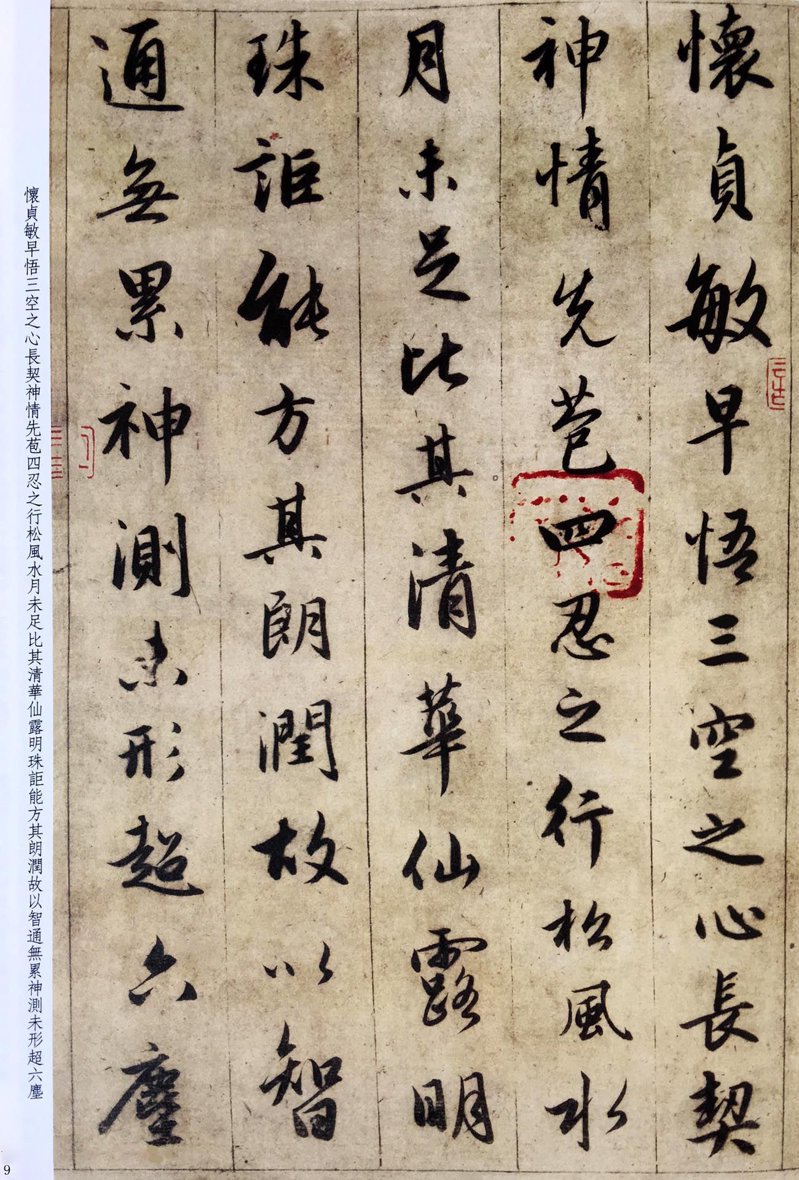 懷貞敏早悟三空之心長契
神情先苞四忍之行松風水
月未足比其清華仙露明
珠詎能方其朗潤故以智
通無累神測未形超六塵
懷貞敏早悟三空之心長契神情先苞四忍之行松風水月未足比其清華仙露明珠詎能方其朗潤故以智通無累神測未形超六塵
9